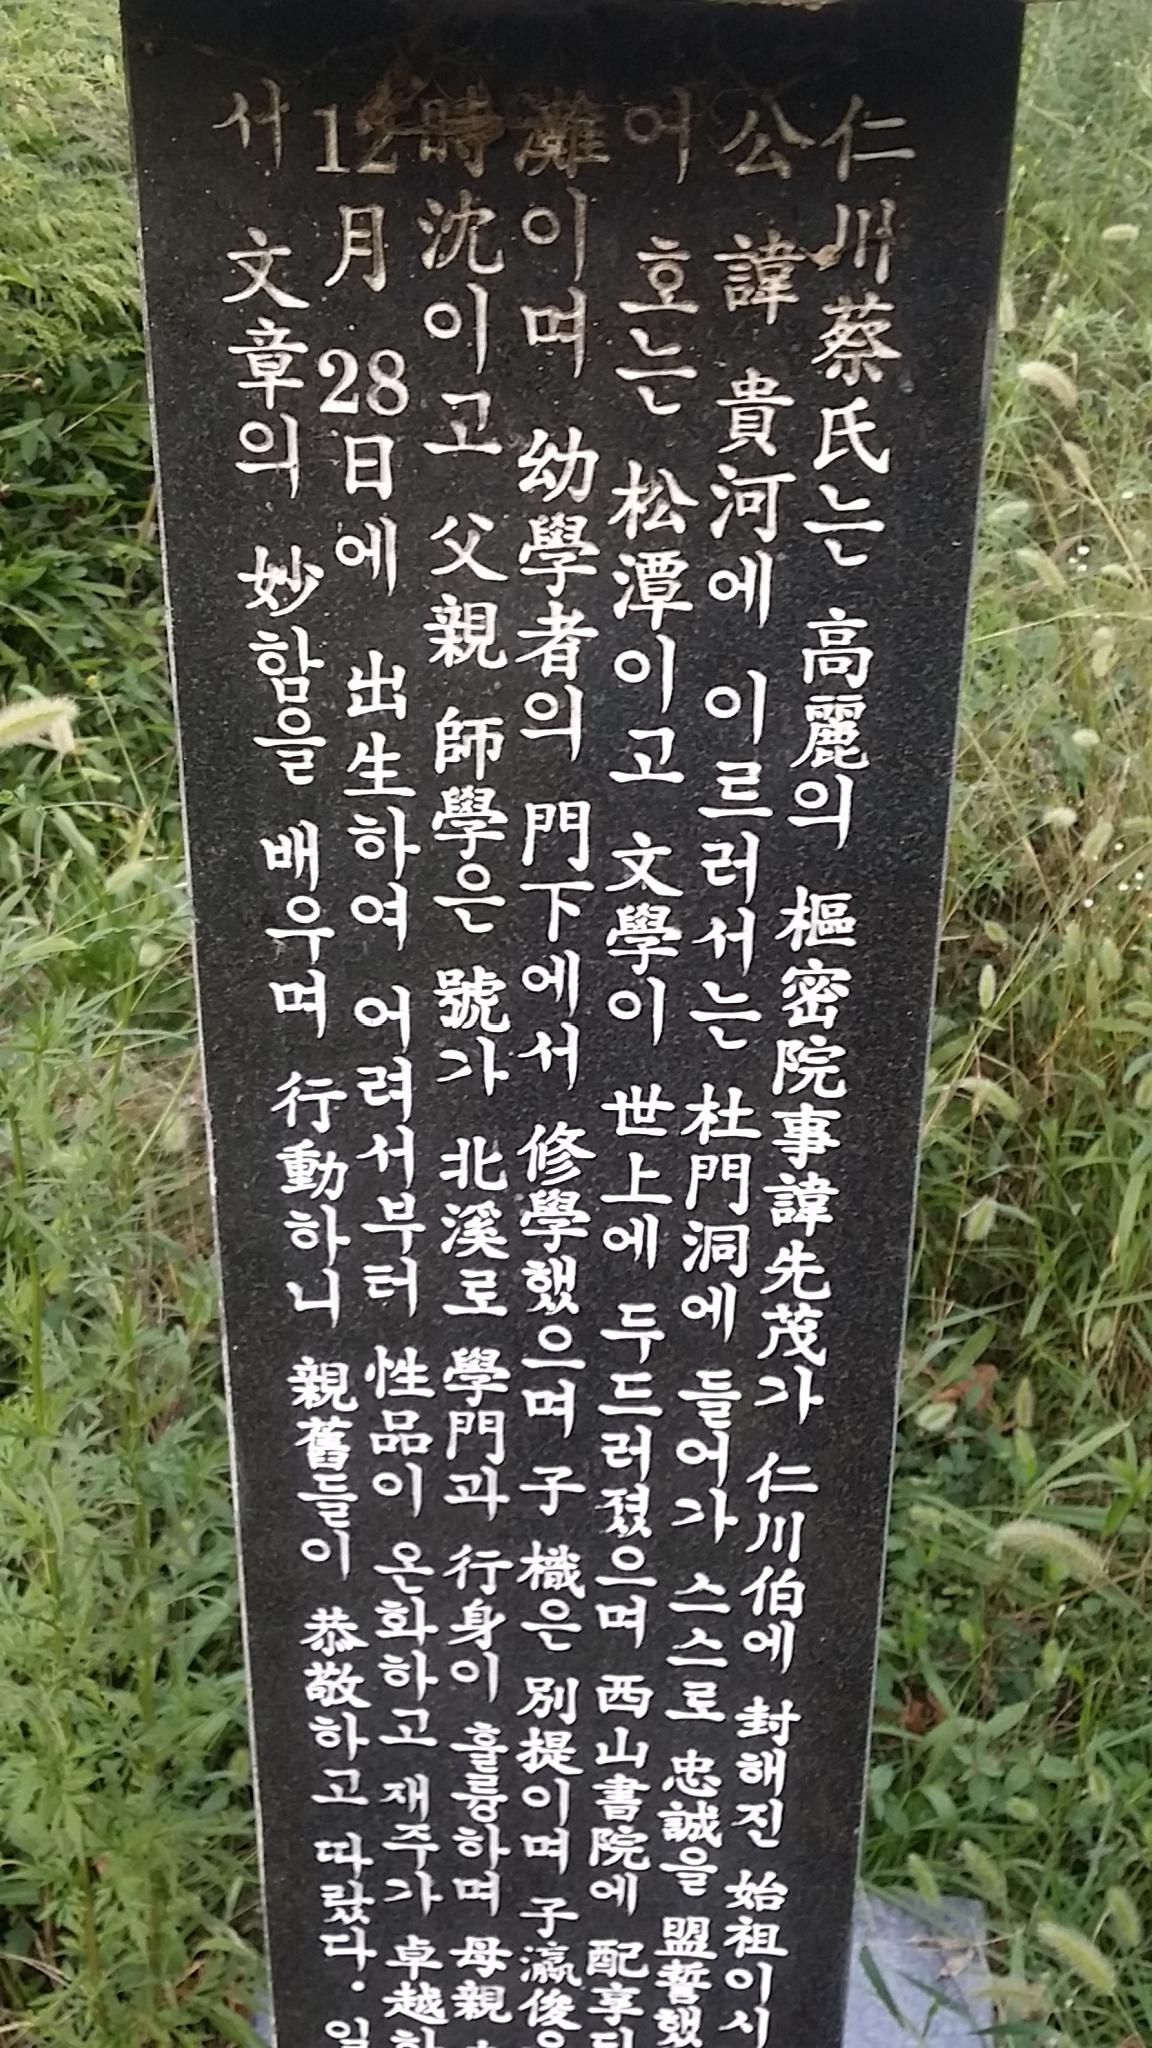 仁川蔡氏는 高麗의 樞密院事諱先茂가 仁川伯에 封해진 始祖이시
公 諱 貴河에 이르러서는 杜門洞에 들어가 스스로 忠誠을 盟誓했
어 호는 松潭이고 文學이 世上에 두드러졌으며 西山書院에 配享되
灘이며 幼學者의 門下에서 修學했으며 子 樴은 別提이며 子瀛俊은
時沈이고 父親 師學은 號가 北溪로 學門과 行身이 훌륭하며 母親
12月 28日에 出生하여 어려서부터 性品이 온화하고 재주가 卓越하
서 文章의 妙함을 배우며 行動하니 親舊들이 恭敬하고 따랐다. 일